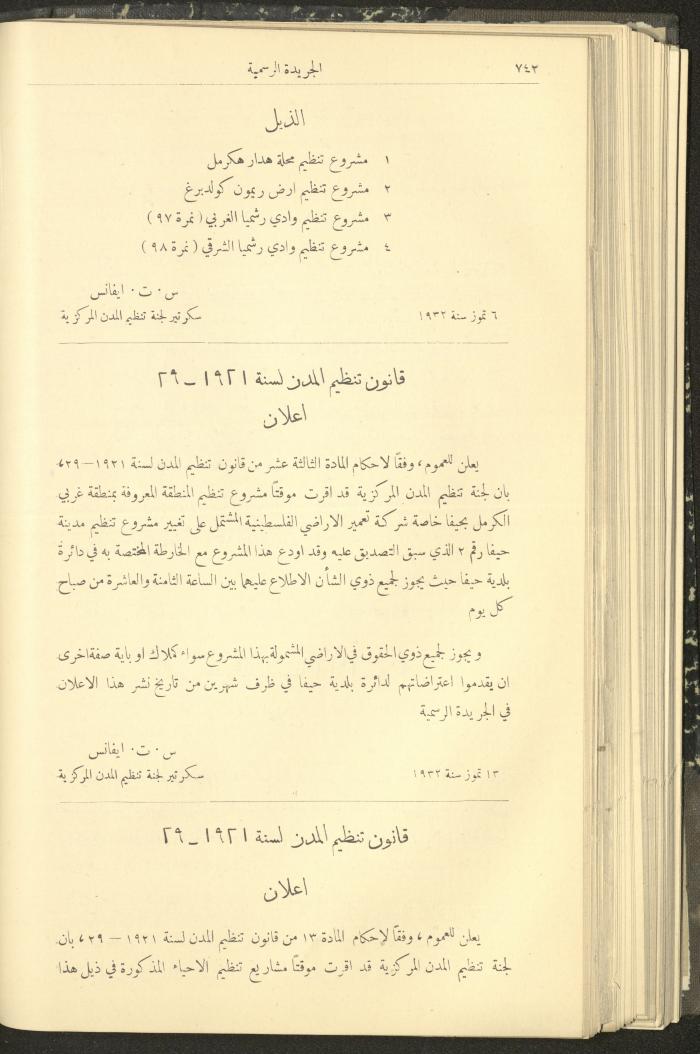 ٧٤٢ الجريدة الرسمية
الذيل
١ مشروع تنظيم محلة هدار هكرمل
٢ مشروع تنظيم ارض ريمون كولدبرغ
٣ مشروع تنظيم وادي رشميا الغربي ( نمرة ٩٧ )
٤ مشروع تنظيم وادي رشميا الشرقي ( نمرة ٩٨ )
س ٠ ت ٠ ايفانس
٦ تموز سنة ١٩٣٢ سكرتير لجنة تنظيم المدن المركزية
قانون تنظيم المدن لسنة ١٩٢١ – ٢٩
اعلان
يعلن للعموم ، وفقاً لاحكام المادة الثالثة عشر من قانون تنظيم المدن لسنة ١٩٢١ – ٢٩ ،
بان لجنة تنظيم المدن المركزية قد اقرت موقتاً مشروع تنظيم المنطقة المعروفة بمنطقة غربي
الكرمل بحيفا خاصة شركة تعمير الاراضي الفلسطينية المشتمل على تغيير مشروع تنظيم مدينة
حيفا رقم ٢ الذي سبق التصديق عليه وقد اودع هذا المشروع مع الخارطة المختصة به في دائرة
بلدية حيفا حيث يجوز لجميع ذوي الشأن الاطلاع عليهما بين الساعة الثامنة والعاشرة من صباح
كل يوم
ويجوز لجميع ذوي الحقوق في الاراضي المشمولة بهذا المشروع سواء كملاك او باية صفة اخرى
ان يقدموا اعتراضاتهم لدائرة بلدية حيفا في ظرف شهرين من تاريخ نشر هذا الاعلان
في الجريدة الرسمية
س ٠ ت ٠ ايفانس
١٣ تموز سنة ١٩٣٢ سكرتير لجنة تنظيم المدن المركزية
قانون تنظيم المدن لسنة ١٩٢١ – ٢٩
اعلان
يعلن للعموم ، وفقاً لاحكام المادة ١٣ من قانون تنظيم المدن لسنة ١٩٢١ – ٢٩ ، بان
لجنة تنظيم المدن المركزية قد اقرت موقتاً مشاريع تنظيم الاحياء المذكورة في ذيل هذا